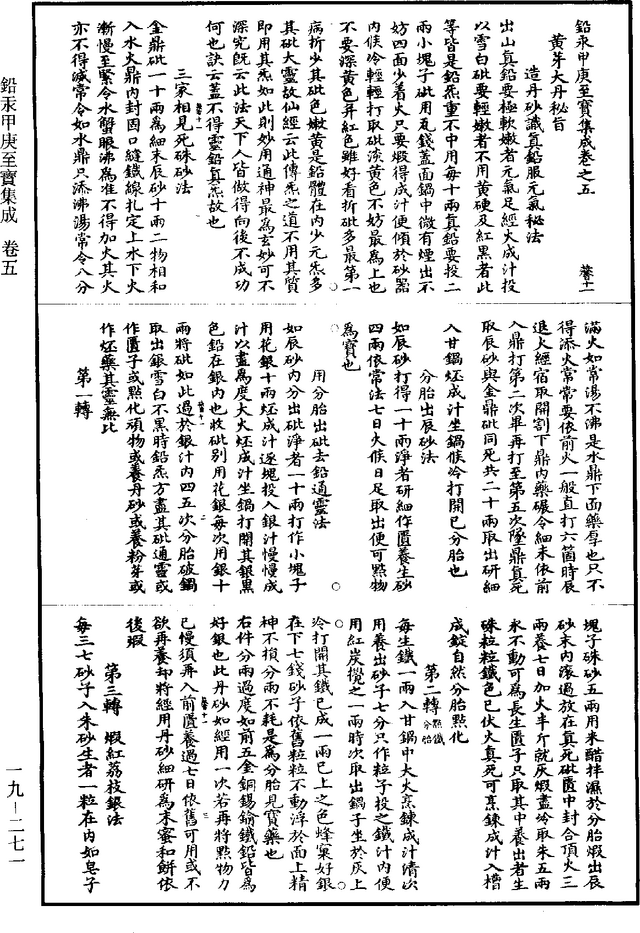 鉛汞甲庚至寶集成 卷五
一九-二七一
鉛汞甲庚至寶集成卷之五
黃芽大丹秘旨
造丹砂識真鉛服元氣秘法
出山真鉛要極軟嫩者元氣足經火成汁投
以雪白砒要輕嫩者不用黃硬及紅黑者此
等皆是鉛炁重不中用每十兩真鉛要投二
兩小塊子砒用瓦錢蓋面鍋中微有煙出不
妨四面少着火只要煅得成汁便傾於砂器
內候冷輕輕打取砒淡黃色不妨最為上也
不要深黃色并紅色雖好看折砒多最第一
病折少其砒色嫩黃是鉛體在內少元炁多
其砒大靈故仙經云此傳炁之道不用其質
即用其炁如此則妙用通神最為玄妙可不
深究既云此法天下人皆做得向後不成功
何也訣云蓋不得靈鉛真炁故也
三家相見死硃砂法
金鼎砒一十兩為細末辰砂十兩二物相和
入水火鼎內封固口縫鐵線扎定上水下火
漸慢至緊令水蟹眼沸為准不得加火其火
亦不得減常令如水鼎只添沸湯常令八分
滿火如常湯不沸是水鼎下面藥厚也只不
得添火常常要依前火一般直打六箇時辰
退火經宿取開割下鼎內藥碾令細末依前
入鼎打第二次畢再打至第五次墜鼎真死
取辰砂與金鼎砒同死共二十兩取出研細
入甘鍋烀成汁坐鍋候冷打開已分胎也
分胎出辰砂法
如辰砂打得一十兩淨者研細作匱養生砂
四兩依常法七日火候日足取出便可點物
為寶也
用分胎出砒去鉛通靈法
如辰砂內分出砒淨者一十兩打作小塊子
用花銀十兩烀成汁逐塊投入銀汁慢慢成
汁以盡為度大火烀成汁坐鍋打開其銀黑
色鉛在銀內也收砒別用花銀每次用銀十
兩將砒如此過於銀汁內四五次分胎破鍋
取出銀雪白不黑時鉛炁方盡其砒通靈或
作匱子或點化頑物或養丹砂或養粉芽或
作烀藥其靈無比
第一轉
塊子硃砂五兩用米醋拌濕於分胎煅出辰
砂末內滾過放在真死砒匱中封合頂火三
兩養七日加火半斤就灰煅盡冷取朱五兩
永不動可為長生匱子只取其中養出者生
硃粒粒鐵色已伏火真死可烹鍊成汁入槽
成錠自然分胎點化
第二轉
每生鐵一兩入甘鍋中大火烹鍊成汁清次
用養出砂子七分只作粒子投之鐵汁內便
用紅炭攪之一兩時次取出鍋子坐於灰上
冷打開其鐵已成一兩已上之色蜂窠好銀
在下七錢砂子依舊粒粒不動浮於面上精
神不損分兩不耗是為分胎見寶藥也
右件分兩過度如前五金銅錫鍮鐵鉛皆為
好銀也此丹砂如經用一次若再將點物力
已慢須再入前匱養過七日依舊可用或不
欲再養却將經用丹砂細研為末蜜和餅依
後煅
第三轉　煅紅荔枝銀法
每三七砂子入朱砂生者一粒在內如皂子